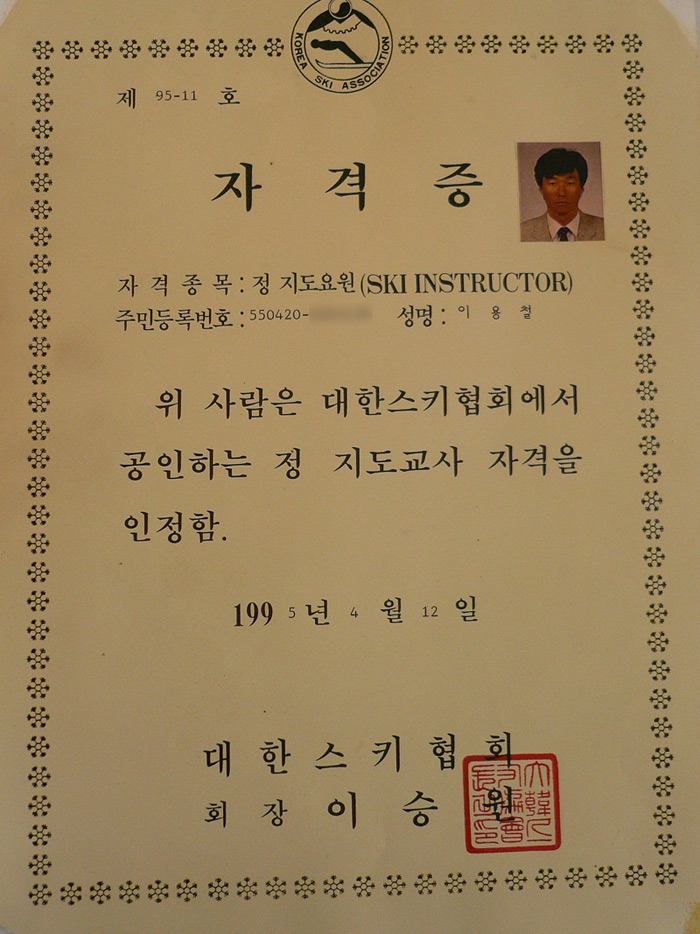 KOREA SKI ASSOCIATION
제 95-11 호
자 격 증
자 격 종 목 : 정 지도요원 (SKI INSTRUCTOR)
주민등록번호 : 550420- 성명 : 이 용 철
위 사람은 대한스키협회에서
공인하는 정 지도교사 자격을
인정함.
1995년 4 월 12 일
대 한 스 키 협 회
회 장 이 승 원